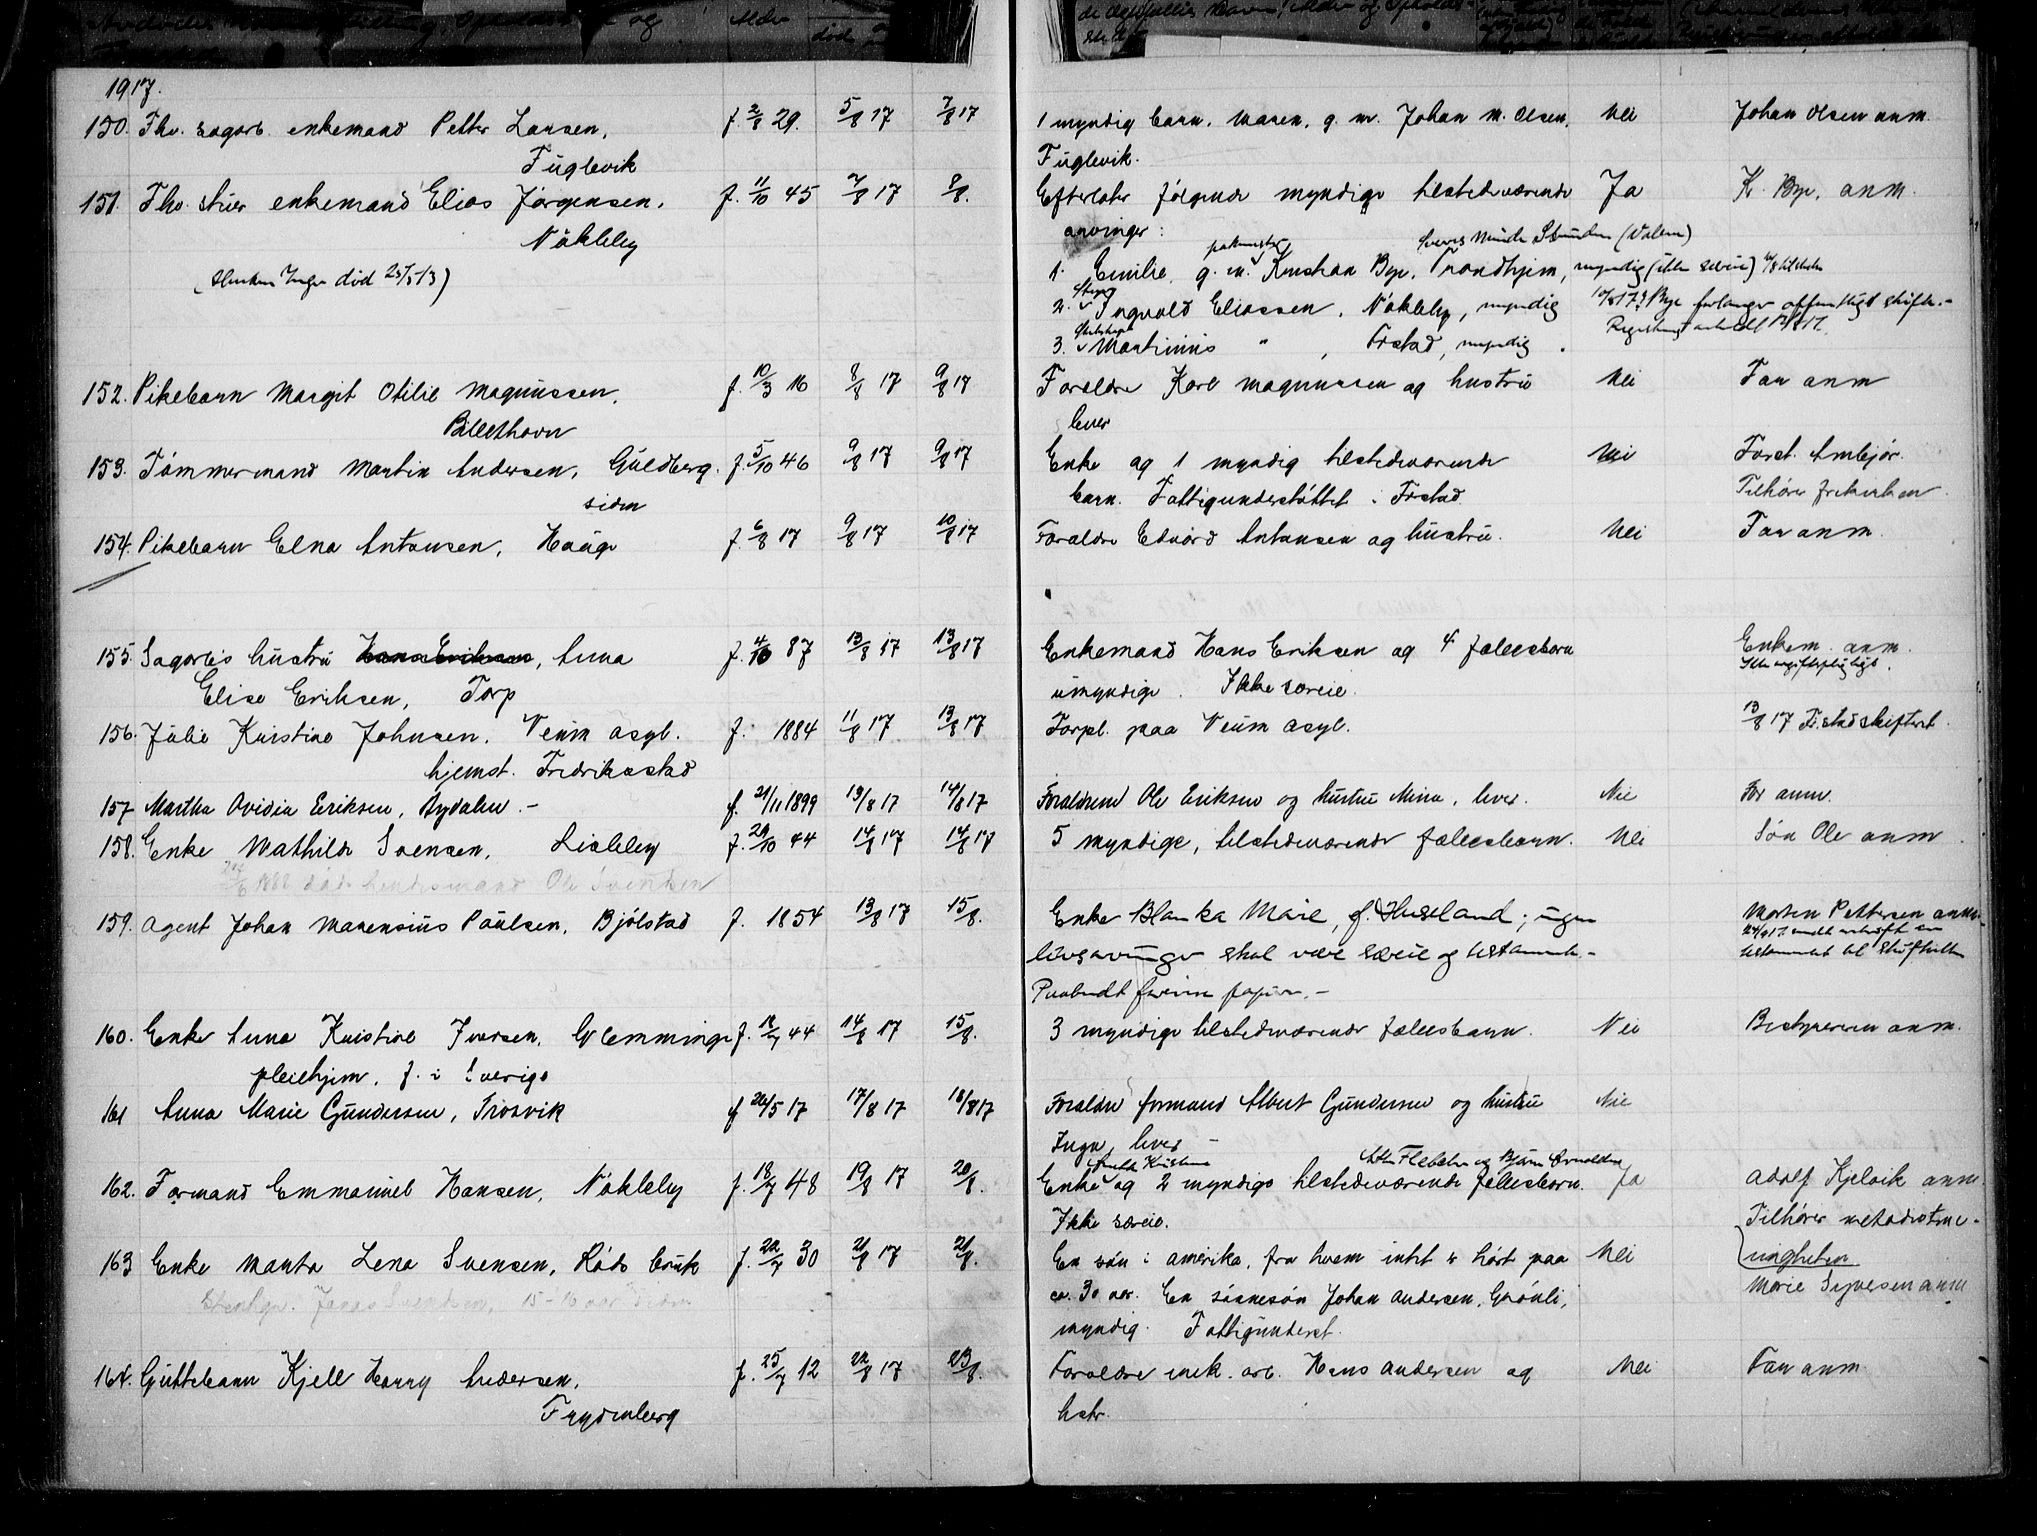 1917.
150. Fhv. sagarb. enkemand Petter Larsen, f. 2/8 29. 5/8 17 7/8 17 1 myndig barn, Maren, g. m. Johan M. Olsen, Nei Johan Olsen anm.
Fuglevik Fuglevik.
151. Fhv. stuer enkemand Elias Jørgensen, f. 11/10 45 7/8 17 8/8. Efterlater følgende myndige tilstedeværende Ja K. Bye, anm.
Nökleby arvinger:
(Hustru Inger död 23/5 13) 1. Emilie, g. m. Kristian Bye, Trondhjem, myndig
2. Ingvald Eliassen, Nökleby, myndig 10/8 17 Bye forlanger offentligt skifte.-
3. Martinius " , Frstad, myndig.
152. Pikebarn Margit Otilie Magnussen, f. 10/3 16 8/8 17 9/8 17 Forældre Karl Magnussen og hustru Nei Far anm
Billethavn lever
153. Tömmermand Martin Andersen, Guldberg- f. 5/10 46 9/8 17 9/8 17 Enke og 1 myndig tilstedeværende Nei Forst. Arnbjør.
siden barn. Fattigunderstöttet i Frstad. Tilhörer frikirken.
154. Pikebarn Elna Antonsen, Hauge f. 6/8 17 9/8 17 10/8 17 Forældre Edvard Antonsen og hustru. Nei Far anm.
155. Sagarb's hustru Hans Eriksen, Anna f. 4/10 87 13/8 17 13/8 17 Enkemand Hans Eriksen og 4 fællesbarn Enkem. anm.
Elise Eriksen, Torp umyndige. Ikke særeie. Ikke avgiftspligtigt.
156. Julie Kristine Johnsen, Veum asyl. f. 1884 11/8 17 13/8 17 Forpl. paa Veum asyl. 13/8 17 Fr.stad skifteret.
hjemst. Fredrikstad
157 Martha Ovidia Eriksen, Rydalen.- f. 21/11 1899 13/8 17 14/8 17 Forældrene Ole Eriksen og hustru Mina, lever. Nei Far anm.
158. Enke Mathilde Svensen, Lisleby f. 29/10 44 14/8 17 14/8 17 5 myndige, tilstedeværende fællesbarn. Nei Søn Ole anm.
1888 döde hendes mand Ole Svendsen
159. Agent Johan Marensius Paulsen, Bjölstad f. 1854 13/8 17 15/8. Enke Blanka Marie, f. Huseland; ingen Morten Pettersen anm.
livsarvinger skal være særeie og testamente.- testamentet til skifteretten
Paabudt
160. Enke Anna Kristine Iversen, Glemminge f. 18/7 44 14/8 17 15/8. 3 myndige tilstedeværende fællesbarn. Nei Bestyreren anm.
pleiehjem, f. i Sverige
161 Anna Marie Gundersen, Trosvik f 26/5 17 17/8 17 18/8 17 Forældre formand Albert Gundersen og hustru Nei
Inga, lever -
162. Formand Emmanuel Hansen, Nökleby f. 18/7 48 19/8 17 20/8. Enke og 2 myndige tilstedeværende fællesbarn. Ja Adolf Kjelvik anm.
Ikke særeie. Tilhörer metodistme-
nigheten
163 Enke Marta Lena Svensen, Röds bruk f. 22/7 30 21/8 17 21/8. En sön i Amerika, fra hvem intet er hört paa Nei Marie Syversen anm
Jonas Svendsen, 15-16 aar siden. ca. 30 aar. En sönnesön Johan Andersen, Grönli,
myndig. Fattigunderst.
164. Guttebarn Kjell Harry Andersen, f. 25/7 12 22/8 17 23/8. Forældre mek. arb. Hans Andersen og Nei Far anm.
Frydenberg hstr.